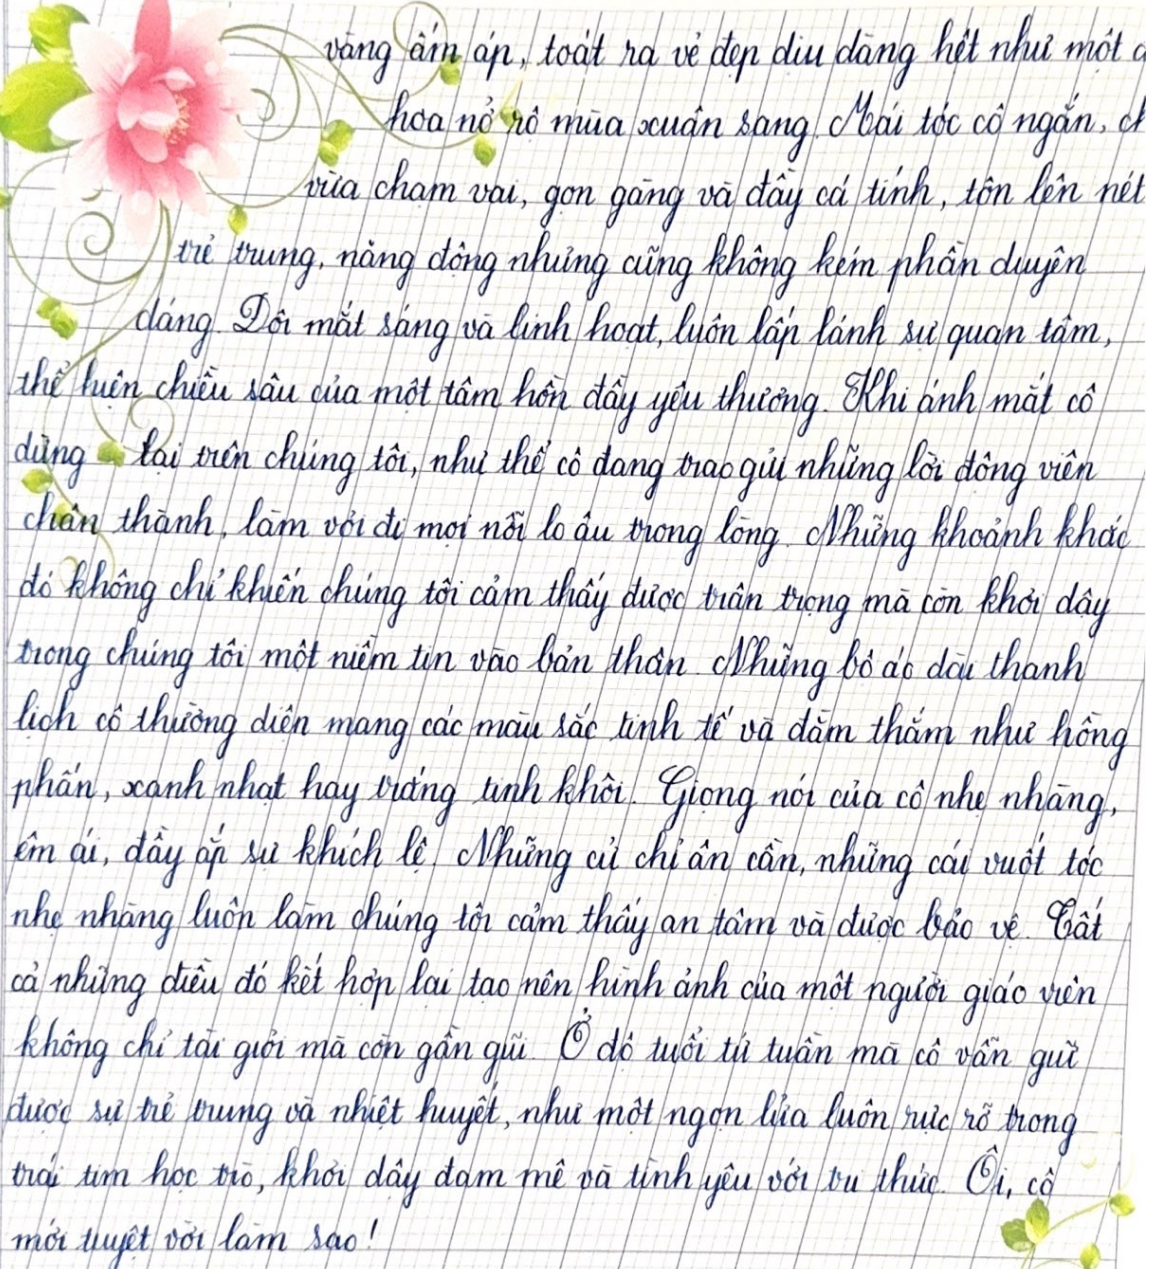 vàng ấm áp, toát ra vẻ đẹp dịu dàng hệt như một
hoa nở rộ mùa xuân sang. Mái tóc cô ngắn,
vừa chạm vai, gọn gàng và đầy cá tính, tôn lên nét
trẻ trung, năng động nhưng cũng không kém phần duyên
dáng. Đôi mắt sáng và linh hoạt, luôn lấp lánh sự quan tâm,
thể hiện chiều sâu của một tâm hồn đầy yêu thương. Khi ánh mắt cô
dừng lại trên chúng tôi, như thể cô đang trao gửi những lời động viên
chân thành, làm vơi đi mọi nỗi lo âu trong lòng. Những khoảnh khắc
đó không chỉ khiến chúng tôi cảm thấy được trân trọng mà còn khơi dậy
trong chúng tôi một niềm tin vào bản thân. Những bộ áo dài thanh
lịch cô thường diện mang các màu sắc tinh tế và đằm thắm như hồng
phấn, xanh nhạt hay trắng tinh khôi. Giọng nói của cô nhẹ nhàng,
êm ái, đầy ắp sự khích lệ. Những cử chỉ ân cần, những cái vuốt tóc
nhẹ nhàng luôn làm chúng tôi cảm thấy an tâm và được bảo vệ. Tất
cả những điều đó kết hợp lại tạo nên hình ảnh của một người giáo viên
không chỉ tài giỏi mà còn gần gũi. Ở độ tuổi tứ tuần mà cô vẫn giữ
được sự trẻ trung và nhiệt huyết, như một ngọn lửa luôn rực rỡ trong
trái tim học trò, khơi dậy đam mê và tình yêu với tri thức. Ôi, cô
mới tuyệt vời làm sao!